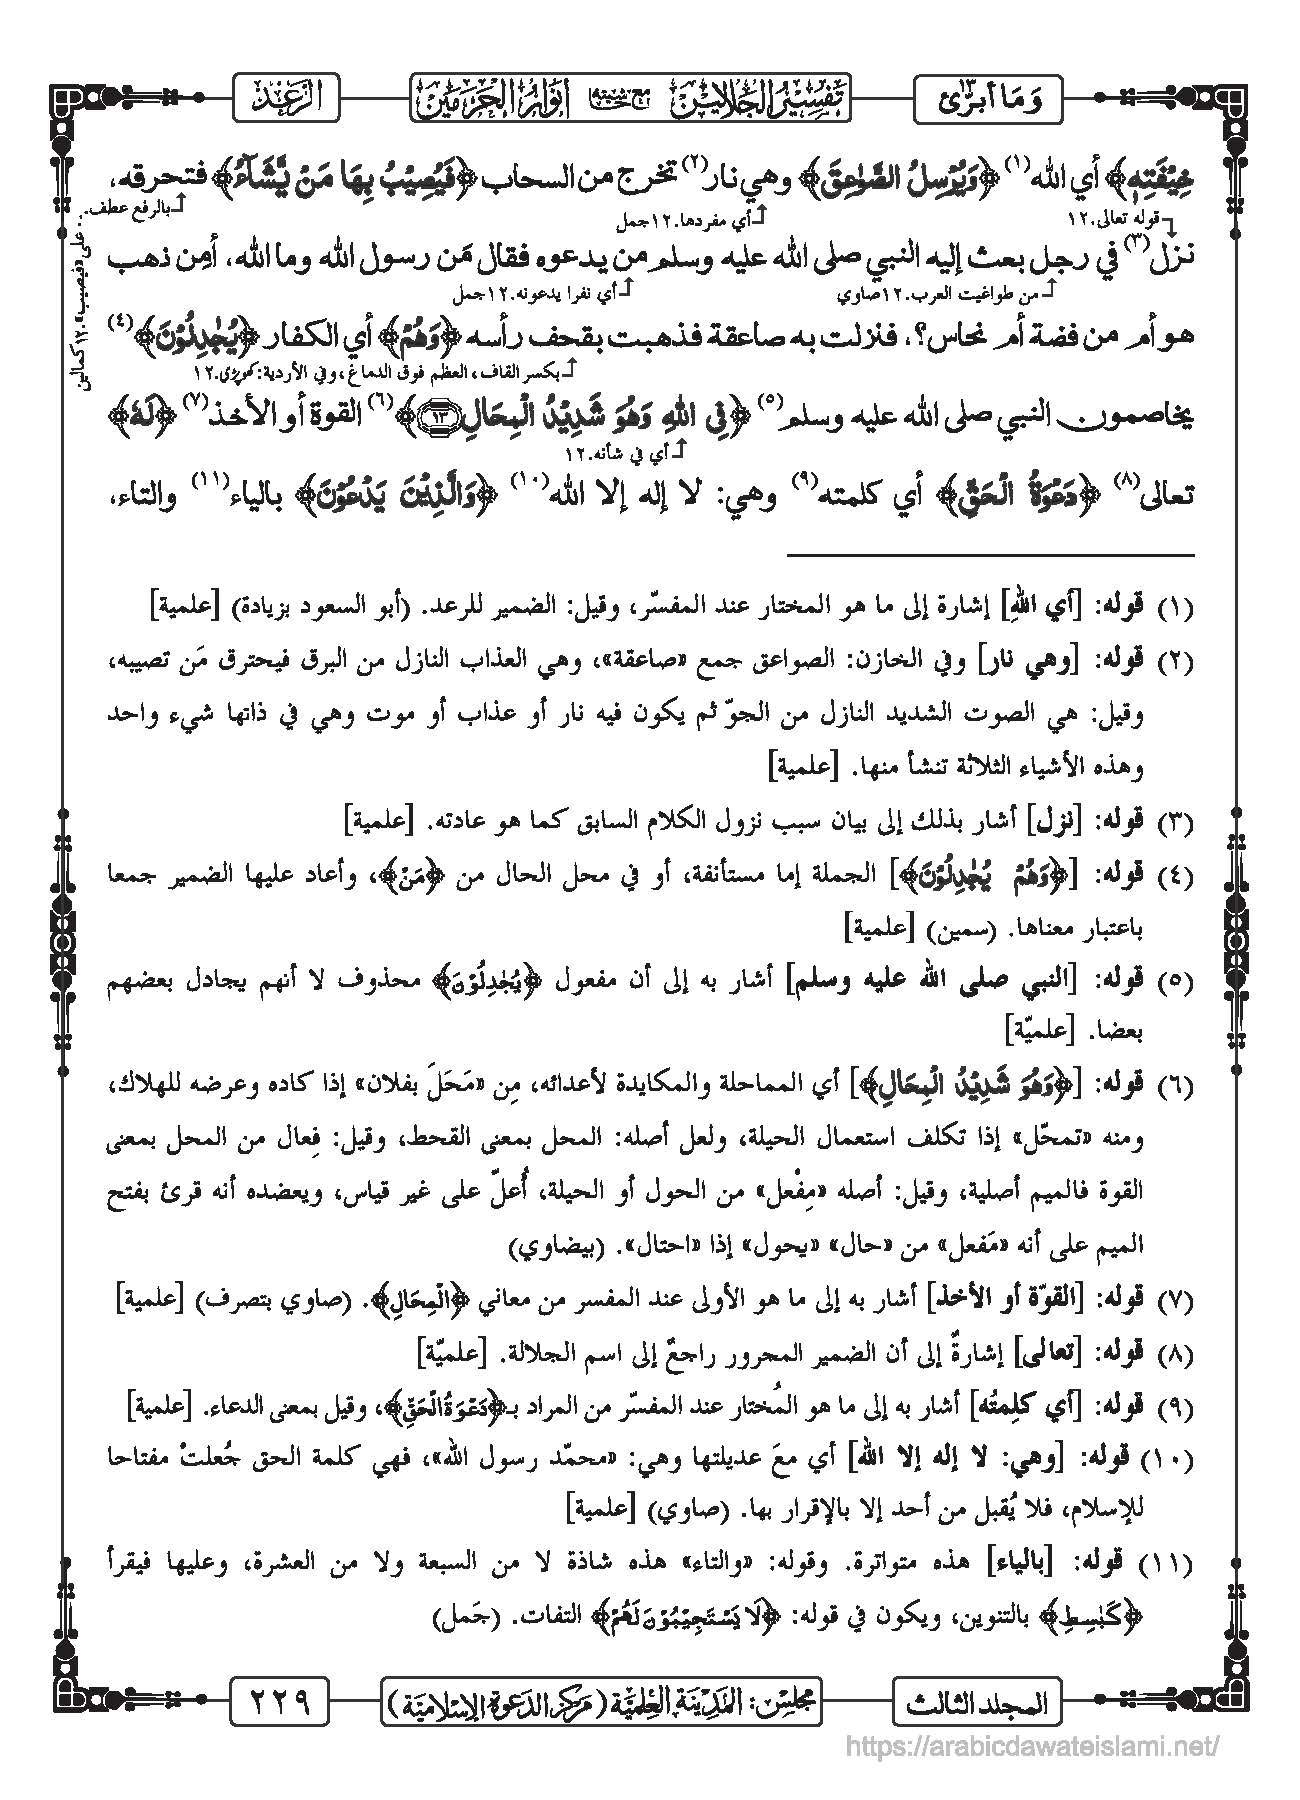 وَمَا أبرّئ ١٣
تفسير الجلالين مع حاشية أنوار الحرمين
الرعد
خِيْفَتِهٖ﴾ أي الله(١) ﴿وَيُرْسِلُ الصَّوَاعِقَ﴾ وهي نار(٢) تخرج من السحاب ﴿فَيُصِيْبُ بِهَا مَنْ يَّشَآءُ﴾ فتحرقه،
قوله تعالى.١٢
أي مفردها.١٢جمل
بالرفع عطف.
على «فيصيب».١٢كمالين
نزل(٣) في رجل بعث إليه النبي صلى الله عليه وسلم من يدعوه فقال مَن رسول الله وما الله، أمِن ذهب
من طواغيت العرب.١٢صاوي
أي نفرا يدعونه.١٢جمل
هو أم من فضة أم نحاس؟، فنزلت به صاعقة فذهبت بقحف رأسه ﴿وَهُمْ﴾ أي الكفار ﴿يُجٰدِلُوْنَ﴾(٤)
بكسر القاف، العظم فوق الدماغ، وفي الأردية:کھوپڑی.١٢
يخاصمون النبي صلى الله عليه وسلم(٥) ﴿فِي اللهِ وَهُوَ شَدِيْدُ الْمِحَالِ ﴿١٣﴾﴾(٦) القوة أو الأخذ(٧) ﴿لَهٗ﴾
أي في شأنه.١٢
تعالى(٨) ﴿دَعْوَةُ الْحَقِّ﴾ أي كلمته(٩) وهي: لا إله إلا الله(١٠) ﴿وَالَّذِيْنَ يَدْعُوْنَ﴾ بالياء(١١) والتاء،
(١) قوله: [أي اللهِ] إشارة إلى ما هو المختار عند المفسّر، وقيل: الضمير للرعد. (أبو السعود بزيادة) [علمية]
(٢) قوله: [وهي نار] وفي الخازن: الصواعق جمع «صاعقة»، وهي العذاب النازل من البرق فيحترق مَن تصيبه،
وقيل: هي الصوت الشديد النازل من الجوّ ثم يكون فيه نار أو عذاب أو موت وهي في ذاتها شيء واحد
وهذه الأشياء الثلاثة تنشأ منها. [علمية]
(٣) قوله: [نزل] أشار بذلك إلى بيان سبب نزول الكلام السابق كما هو عادته. [علمية]
(٤) قوله: [﴿وَهُمْ يُجٰدِلُوْنَ﴾] الجملة إما مستأنفة، أو في محل الحال من ﴿مَنْ﴾، وأعاد عليها الضمير جمعا
باعتبار معناها. (سمين) [علمية]
(٥) قوله: [النبي صلى الله عليه وسلم] أشار به إلى أن مفعول ﴿يُجٰدِلُوْنَ﴾ محذوف لا أنهم يجادل بعضهم
بعضا. [علميّة]
(٦) قوله: [﴿وَهُوَ شَدِيْدُ الْمِحَالِ﴾] أي المماحلة والمكايدة لأعدائه، مِن «مَحَلَ بفلان» إذا كاده وعرضه للهلاك،
ومنه «تمحّل» إذا تكلف استعمال الحيلة، ولعل أصله: المحل بمعنى القحط، وقيل: فِعال من المحل بمعنى
القوة فالميم أصلية، وقيل: أصله «مِفْعل» من الحول أو الحيلة، أُعلّ على غير قياس، ويعضده أنه قرئ بفتح
الميم على أنه «مَفعل» من «حال» «يحول» إذا «احتال». (بيضاوي)
(٧) قوله: [القوّة أو الأخذ] أشار به إلى ما هو الأولى عند المفسر من معاني ﴿الْمِحَالِ﴾. (صاوي بتصرف) [علمية]
(٨) قوله: [تعالى] إشارةٌ إلى أن الضمير المجرور راجعٌ إلى اسم الجلالة. [علميّة]
(٩) قوله: [أي كلِمتُه] أشار به إلى ما هو المُختار عند المفسّر من المراد بـ﴿دَعْوَةُ الْحَقِّ﴾، وقيل بمعنى الدعاء. [علمية]
(١٠) قوله: [وهي: لا إله إلا الله] أي معَ عديلتها وهي: «محمّد رسول الله»، فهي كلمة الحق جُعلتْ مفتاحا
للإسلام، فلا يُقبل من أحد إلا بالإقرار بها. (صاوي) [علمية]
(١١) قوله: [بالياء] هذه متواترة. وقوله: «والتاء» هذه شاذة لا من السبعة ولا من العشرة، وعليها فيقرأ
﴿كَبٰسِطٍ﴾ بالتنوين، ويكون في قوله: ﴿لَا يَسْتَجِيْبُوْنَ لَهُمْ﴾ التفات. (جَمل)
المجلد الثالث
مجلس: المدينة العلمية (مركز الدعوة الإسلامية)
٢٢٩
https://arabicdawateislami.net/